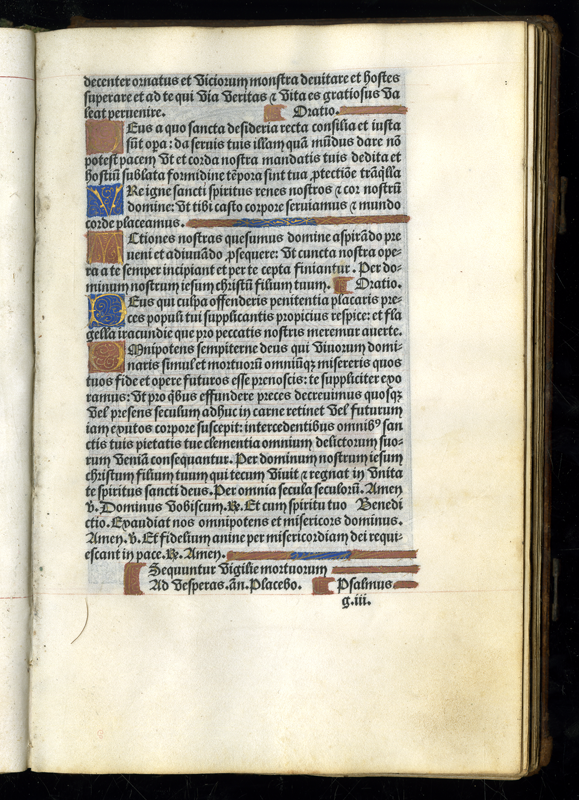 decenter ornatus et viciorum monstra devitare et hostes
superare et ad te qui via veritas ⁊ vita es gratiosus va
leat pervenire. Oratio.
DEus a quo sancta desideria recta consilia et iusta
sũt opa: da servis tuis illam quã mũdus dare nõ
potest pacem vt et corda nostra mandatis tuis dedita et
hostiũ sublata formidine tẽpora sint tua ꝓtectiõe trãq̃lla
VRe igne sancti spiritus renes nostros ⁊ cor nostrũ
domine: vt tibi casto corpore serviamus ⁊ mundo
corde placeamus.
ACtiones nostras quesumus domine aspirãdo pre
veni et adiuvãdo ꝓsequere: vt cuncta nostra ope-
ra a te semper incipiant et per te cepta finiantur. Per do-
minum nostrum iesum christũ filium tuum. Oratio.
DEus qui culpa offenderis penitentia placaris pre-
ces populi tui supplicantis propicius respice: et fla
gella iracundie que pro peccatis nostris meremur averte.
OMnipotens sempiterne deus qui vivorum domi-
naris simul et mortuorũ omniũq̃ misereris quos
tuos fide et opere futuros esse prenoscis: te suppliciter exo
ramus: vt pro q̃bus effundere preces decrevimus quosqꝫ
vel presens seculum adhuc in carne retinet vel futurum
iam exutos corpore suscepit: intercedentibus omnibꝰ san
ctis tuis pietatis tue clementia omnium delictorum suo-
rum veniã consequantur. Per dominum nostrum iesum
christum filium tuum qui tecum vivit ⁊ regnat in vnita
te spiritus sancti deus. Per omnia secula seculorũ. Amen
℣. Dominus vobiscum. ℟. Et cum spiritu tuo Benedi
ctio. Exaudiat nos omnipotens et misericors dominus.
Amen. ℣. Et fidelium anime per misericordiam dei requi-
escant in pace. ℟. Amen.
Sequuntur vigilie mortuorum
Ad vesperas. añ. Placebo. Psalmus
g.iii.